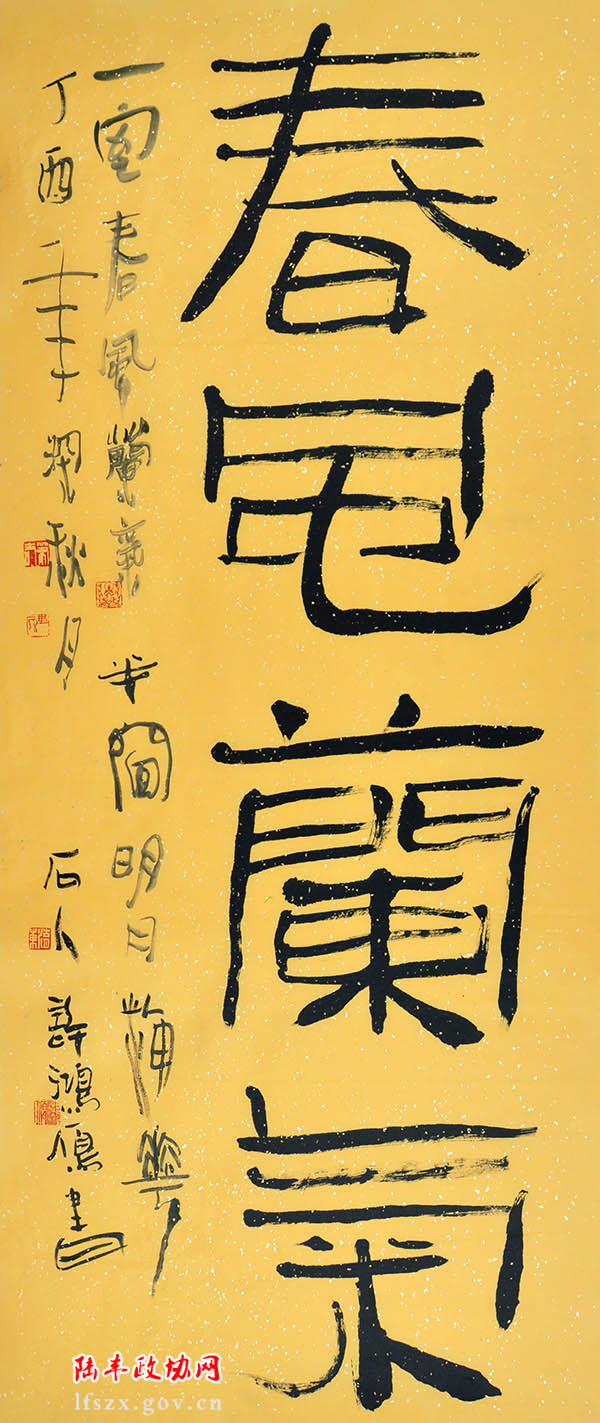 春風蘭氣
一室春風蘭氣 半窗明月梅華
丁酉年 秋月 石人 許鴻雁書
陆丰政协网
lfszx.gov.cn